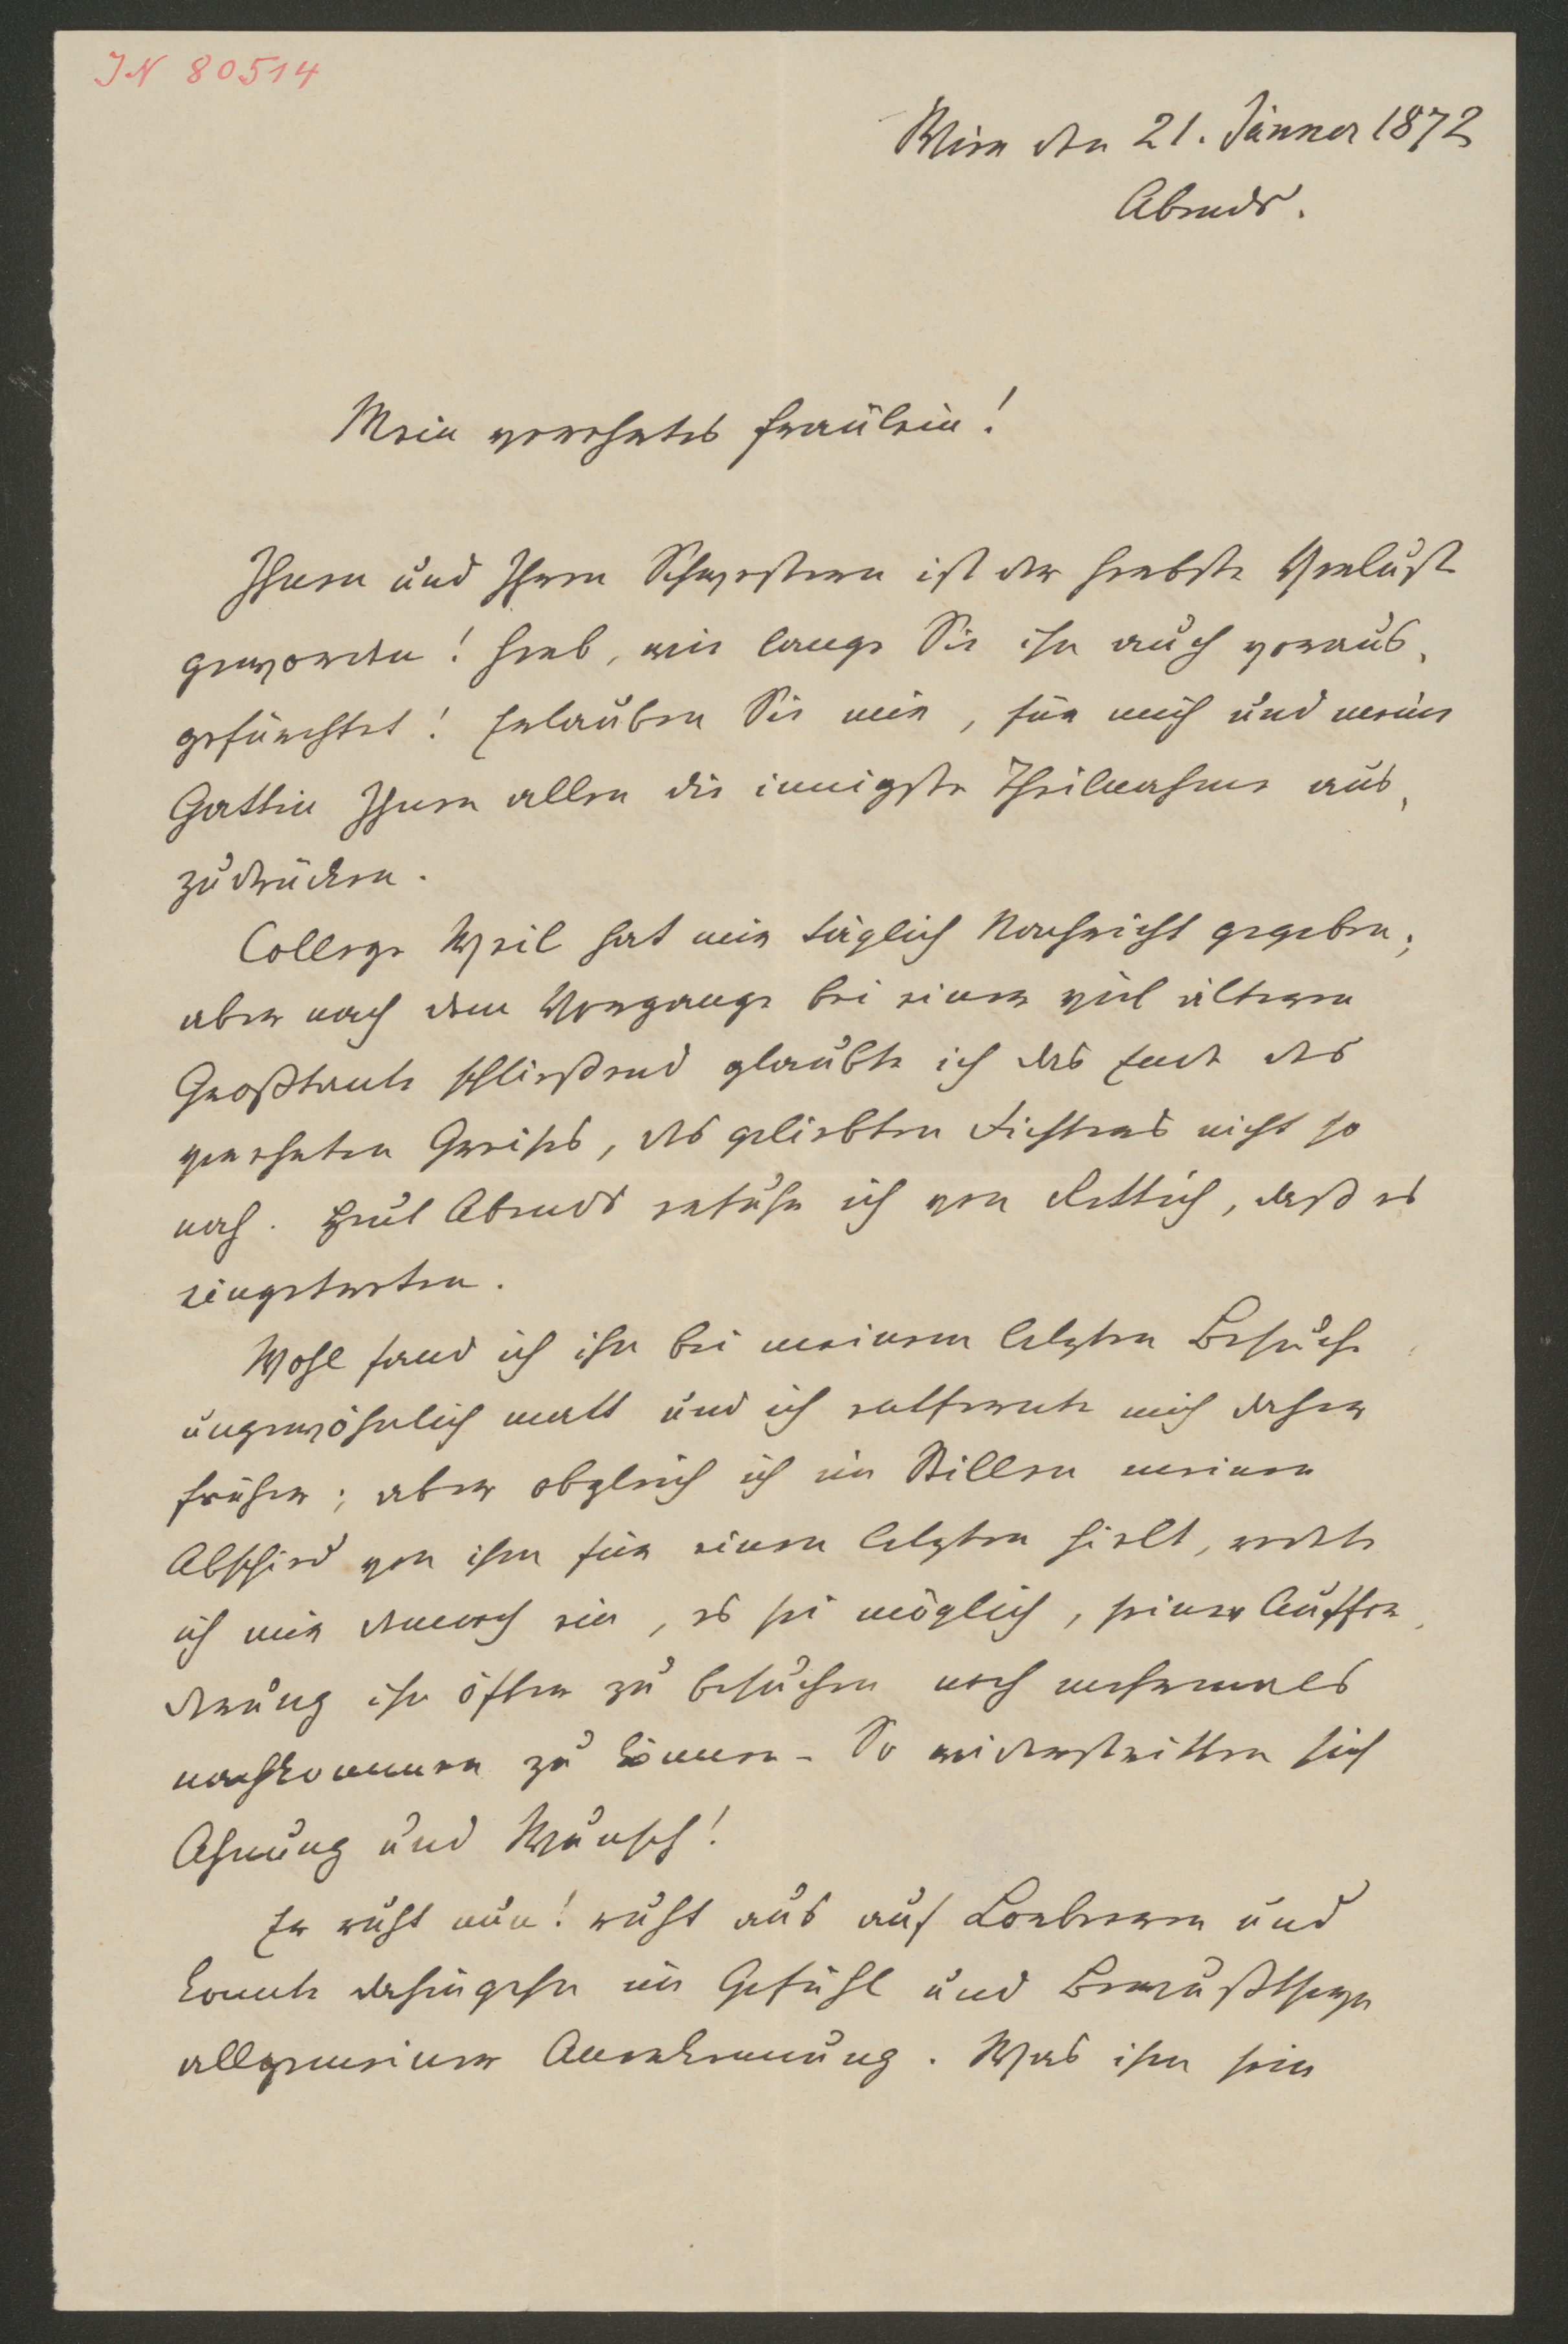 IN 80514
Wien den 21. Jänner 1872
Abends.
Mein verehrtes Fräulein!
Ihnen und Ihren Schwestern ist der herbste Verlust
geworden! Herb, wie lange Sie ihn auch voraus,
gefürchtet! Erlauben Sie mir, für mich und meine
Gattin Ihnen allen die innigste Theilnahme aus,
zudrücken.
College Weil hat mir täglich Nachricht gegeben;
aber nach dem Vorgange bei einer viel älteren
Großtante schließend glaubte ich das Ende des
verehrten Greises, des geliebten Dichters nicht so
nah. Heut Abends erfuhr ich von Rettich, daß es
eingetreten.
Wohl fand ich ihn bei meinem letzten Besuche
ungewöhnlich matt und ich entfernte mich daher
früher; aber obgleich ich im Stillen meinen
Abschied von ihm für einen letzten hielt, redete
ich mir dennoch ein, es sei möglich, seiner Auffor,
derung ihn öfter zu besuchen noch mehrmals
nachkommen zu können – So widerstritten sich
Ahnung und Wunsch!
Er ruht nun! ruht aus auf Lorbeeren und
konnte dahingehn im Gefühl und Bewußtseyn
allgemeiner Anerkennung. Was ihm sein